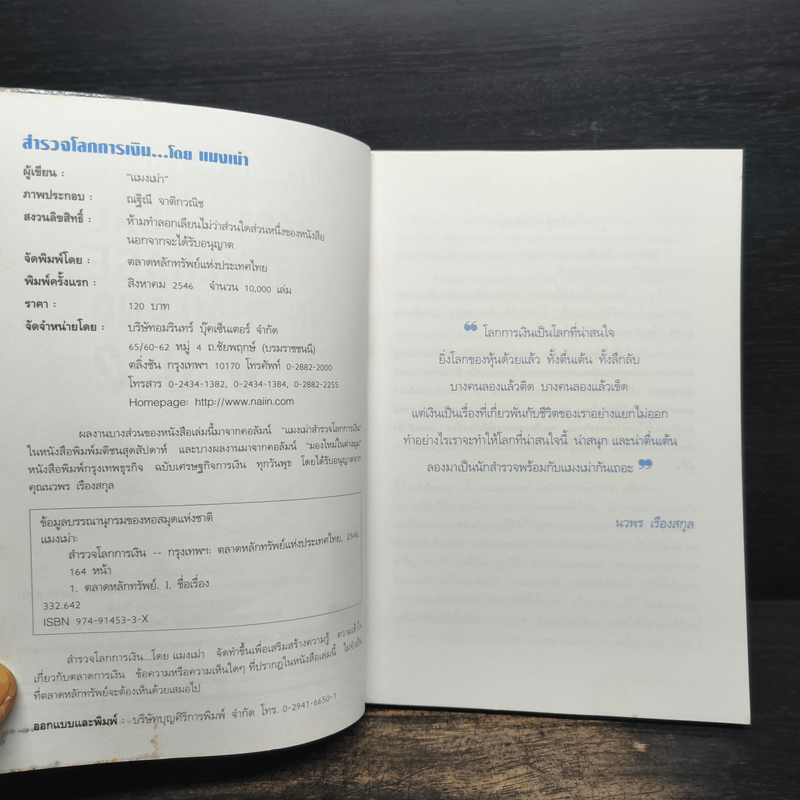 สำรวจโลกการเงิน...โดย แมงเม่า
ผู้เขียน : "แมงเม่า"
ภาพประกอบ : ณฐิณี จาติกวณิช
สงวนลิขสิทธิ์ : ห้ามทำลอกเลียนไม่ว่าส่วนใดส่วนหนึ่งของหนังสือ
นอกจากจะได้รับอนุญาต
จัดพิมพ์โดย : ตลาดหลักทรัพย์แห่งประเทศไทย
พิมพ์ครั้งแรก : สิงหาคม 2546 จำนวน 10,000 เล่ม
ราคา : 120 บาท
จัดจำหน่ายโดย : บริษัทอมรินทร์ บุ๊คเซ็นเตอร์ จำกัด
65/60-62 หมู่ 4 ถ.ชัยพฤกษ์ (บรมราชชนนี)
ตลิ่งชัน กรุงเทพฯ 10170 โทรศัพท์ 0-2882-2000
โทรสาร 0-2434-1382, 0-2434-1384, 0-2882-2255
Homepage: http://www.naiin.com
ผลงานบางส่วนของหนังสือเล่มนี้มาจากคอลัมน์ "แมงเม่าสำรวจโลกการเงิน"
ในหนังสือพิมพ์มติชนสุดสัปดาห์ และบางผลงานมาจากคอลัมน์ "มองใหม่ในต่างมุม"
หนังสือพิมพ์กรุงเทพธุรกิจ ฉบับเศรษฐกิจการเงิน ทุกวันพุธ โดยได้รับอนุญาตจาก
คุณนวพร เรืองสกุล
ข้อมูลบรรณานุกรมของหอสมุดแห่งชาติ
แมงเม่า:
สำรวจโลกการเงิน -- กรุงเทพฯ: ตลาดหลักทรัพย์แห่งประเทศไทย. 2546
164 หน้า
1. ตลาดหลักทรัพย์. I. ชื่อเรื่อง
332.642
ISBN 974-91453-3-X
สำรวจโลกการเงิน...โดย แมงเม่า จัดทำขึ้นเพื่อเสริมสร้างความรู้ ความเข้าใจ
เกี่ยวกับตลาดการเงิน ข้อความหรือความเห็นใดๆ ที่ปรากฏในหนังสือเล่มนี้ ไม่จำเป็น
ที่ตลาดหลักทรัพย์จะต้องเห็นด้วยเสมอไป
ออกแบบและพิมพ์ : บริษัทบุญศิริการพิมพ์ จำกัด โทร. 0-2941-6650-1
❝ โลกการเงินเป็นโลกที่น่าสนใจ
ยิ่งโลกของหุ้นด้วยแล้ว ทั้งตื่นเต้น ทั้งลึกลับ
บางคนลองแล้วติด บางคนลองแล้วเข็ด
แต่เงินเป็นเรื่องที่เกี่ยวพันกับชีวิตของเราอย่างแยกไม่ออก
ทำอย่างไรเราจะทำให้โลกที่น่าสนใจนี้ น่าสนุก และน่าตื่นเต้น
ลองมาเป็นนักสำรวจพร้อมกับแมงเม่ากันเถอะ ❞
นวพร เรืองสกุล